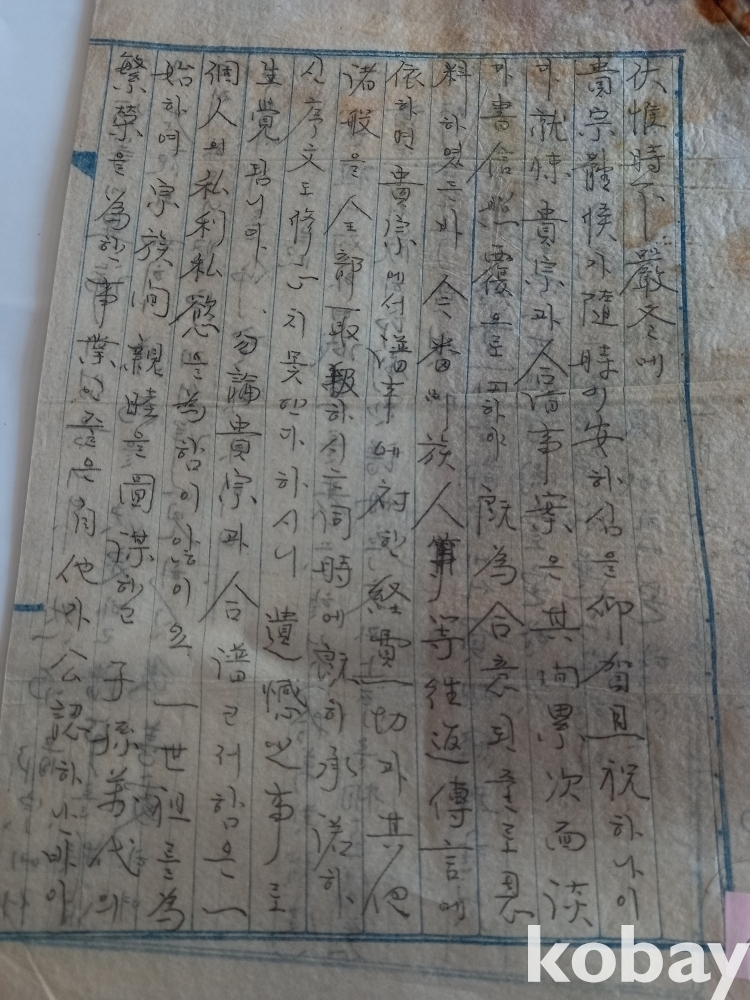 伏惟時下嚴冬之에
貴宗體候가隨時이安하심을仰賀且祝하나이
다 就悚貴宗과合譜事案은其間累次面談
과書信照覆으로因하야 旣為合意되줄로思
料하였든바 今番鄙族人 等往返傳言에
依하면貴宗에서譜事에對한経費一切과其他
諸般을全部 하시는同時에旣히承諾하
신序文도修 치못한다하시니 遺憾之事로
生覺됩니다. 勿論貴宗과合譜 함은一
個人의私利私慾을為함이않이요 一世祖를為
始하여宗族间親睦을圖謀하고 子孫萬代의
繁榮을為한事業인줄은自他가公認하는바이
kobay